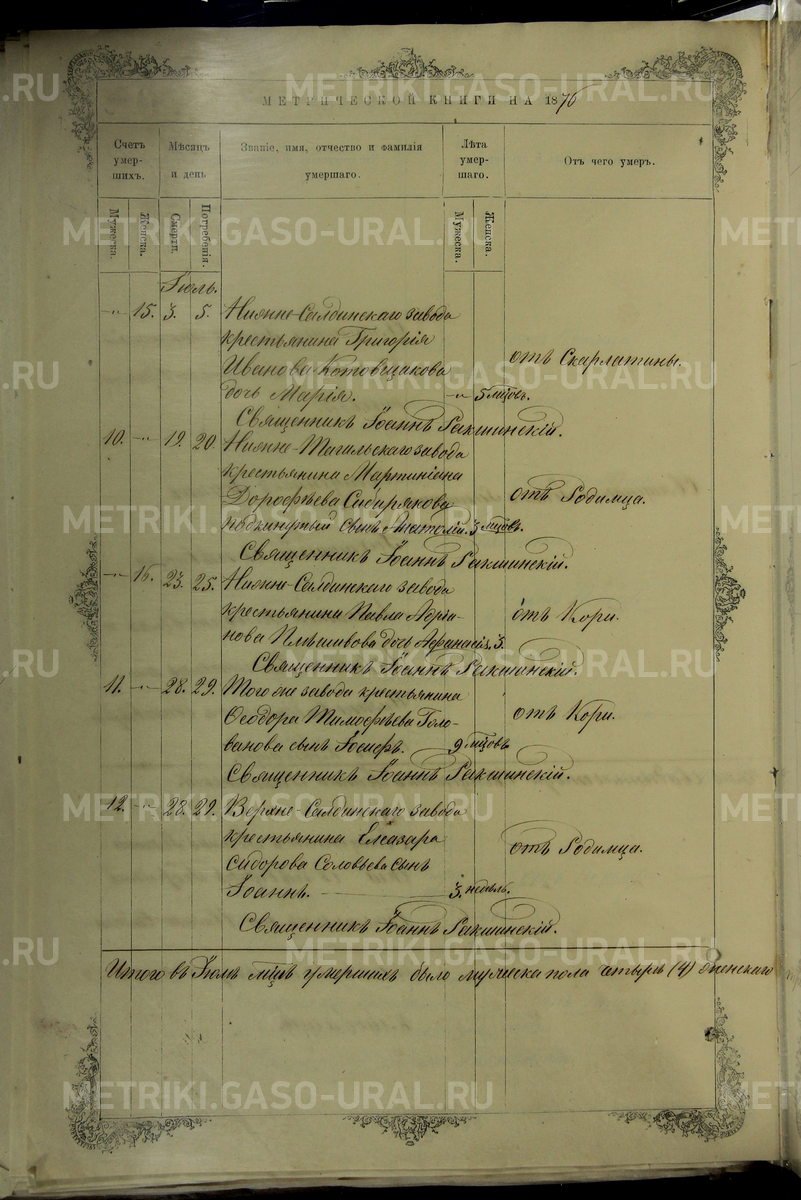 METRIKI.GASO-URAL.RU
МЕТРИЧЕСКОЙ КНИГИ НА 1876
Счетъ умер-шихъ.
Мѣсяцъ и день
Званіе, имя, отчество и фамилія умершаго.
Лѣта умер-шаго.
Отъ чего умеръ.
Мужеска.
Женска.
Смерти.
Погребенія.
Мужеска.
Женска.
Іюль.
-"- 15. 3. 5. Нижне-Салдинскаго завода
крестьянина Григорія
Иванова Котовщикова отъ Скарлатины.
дочь Марія. -"- 5 мцовъ.
Священникъ Іоаннъ Ракшинскій.
10. -"- 19. 20. Нижне-Тагильскаго завода
крестьянина Мартиніана
Дорофѣева Сибирякова отъ Родимца.
подкинутый сынъ Анатолій. 3 мцовъ.
Священникъ Іоаннъ Ракшинскій.
-"- 16. 23. 25. Нижне-Салдинскаго завода
крестьянина Павла Адріа- отъ Кори.
нова Плѣшивова дочь Афанасія, 3.
Священникъ Іоаннъ Ракшинскій.
11. -"- 28. 29. Того же завода крестьянина
Ѳеодора Тимофѣева Голо- отъ Кори.
ванова сынъ Іосифъ. 9 мцовъ
Священникъ Іоаннъ Ракшинскій.
12. -"- 28. 29. Верхне-Салдинскаго завода
крестьянина Елеазара отъ Родимца.
Сидорова Соловьева сынъ
Іоаннъ. 3. недѣль.
Священникъ Іоаннъ Ракшинскій.
Итого въ Іюлѣ мцѣ умершихъ было мужеска пола четыре (4) женскаго